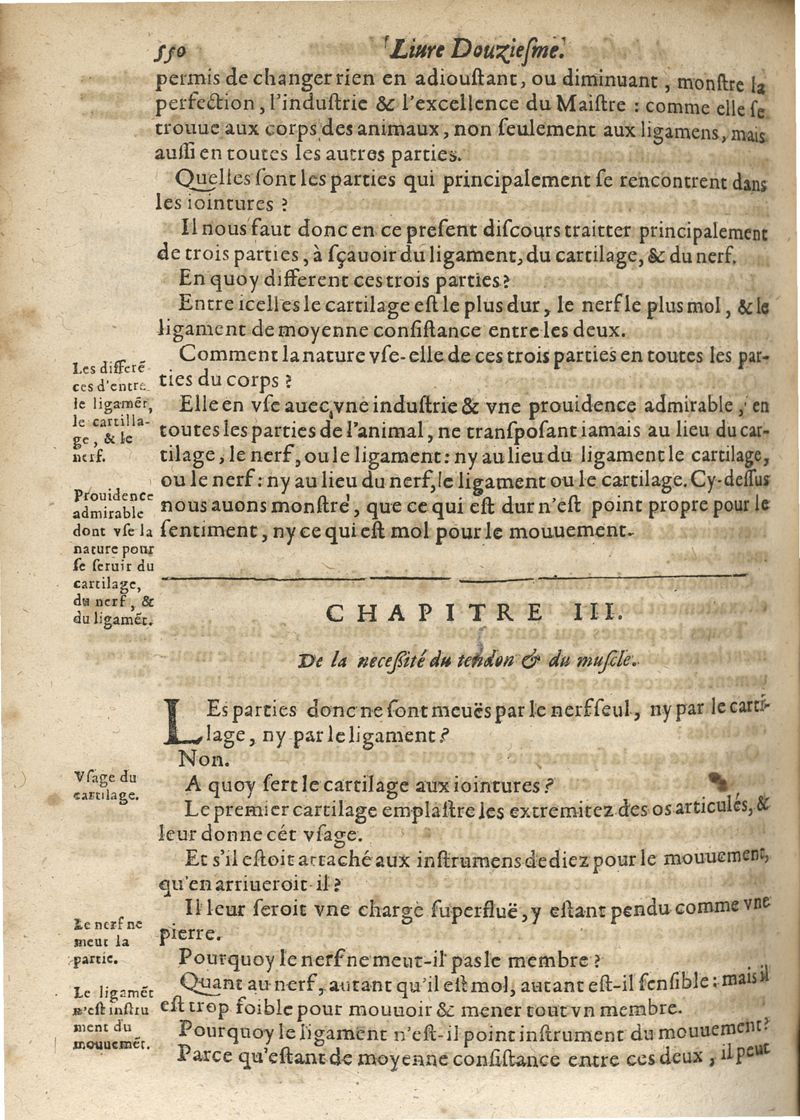 550
Liure Douzieſme.
permis de changer rien en adiouſtant, ou diminuant, monſtre la
perfection, l'induſtrie & l'excellence du Maiſtre : comme elle ſe
trouue aux corps des animaux, non ſeulement aux ligamens, mais
auſſi en toutes les autres parties.
Quelles ſont les parties qui principalement ſe rencontrent dans
les iointures ?
Il nous faut donc en ce preſent diſcours traitter principalement
de trois parties, à ſçauoir du ligament, du cartilage, & du nerf.
En quoy different ces trois parties ?
Entre icelles le cartilage eſt le plus dur, le nerf le plus mol, & le
ligament de moyenne conſiſtance entre les deux.
Comment la nature vſe-elle de ces trois parties en toutes les par-
ties du corps ?
Elle en vſe auec vne induſtrie & vne prouidence admirable, en
toutes les parties de l'animal, ne tranſpoſant iamais au lieu du car-
tilage, le nerf, ou le ligament : ny au lieu du ligament le cartilage,
ou le nerf : ny au lieu du nerf, le ligament ou le cartilage. Cy-deſſus
nous auons monſtré, que ce qui eſt dur n'eſt point propre pour le
ſentiment, ny ce qui eſt mol pour le mouuement.
Les differẽ
ces d'entre
le ligamẽt,
le cartila-
ge, & le
nerf.
Prouidence
admirable
dont vſe la
nature pour
ſe ſeruir du
cartilage,
du nerf, &
du ligamẽt.
CHAPITRE III.
De la neceſſité du tendon & du muſcle.
LEs parties donc ne ſont meuës par le nerf ſeul, ny par le carti-
lage, ny par le ligament ?
Non.
A quoy ſert le cartilage aux iointures ?
Le premier cartilage emplaſtre les extremitez des os articulés, &
leur donne cét vſage.
Et s'il eſtoit attaché aux inſtrumens dediez pour le mouuement,
qu'en arriueroit-il ?
Il leur ſeroit vne charge ſuperfluë, y eſtant pendu comme vne
pierre.
Pourquoy le nerf ne meut-il pas le membre ?
Quant au nerf, autant qu'il eſt mol, autant eſt-il ſenſible : mais il
eſt trop foible pour mouuoir & mener tout vn membre.
Pourquoy le ligament n'eſt-il point inſtrument du mouuement ?
Parce qu'eſtant de moyenne conſiſtance entre ces deux, il peut
Vſage du
cartilage.
Le nerf ne
meut la
partie.
Le ligamẽt
n'eſt inſtru
ment du
mouuemẽt.